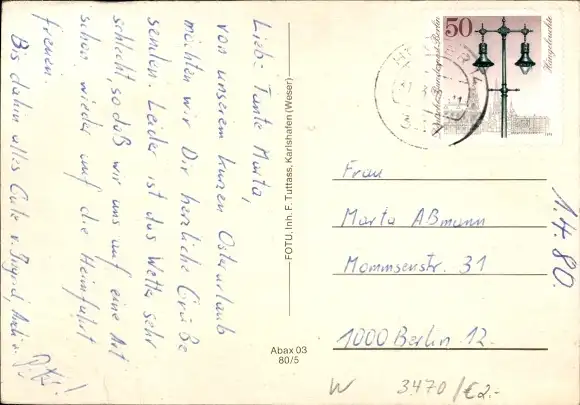 Liebe Tante Marta,
von unserem kurzen Osterurlaub
möchten wir Dir herzliche Grüße
senden. Leider ist das Wetter sehr
schlecht, so daß wir uns auf eine Art
schon wieder auf die Heimfahrt
freuen.
Bis dahin alles Gute v. Ingrid,
FOTU, Inh. F. Tuttass, Karlshafen (Weser)
Abax 03
80/5
50
Deutsche Bundespost Berlin
Hängeleuchte
Frau
Marta Aßmann
Mommsenstr. 31
1000 Berlin 12.
1.4.80.
W 3470/€2.-